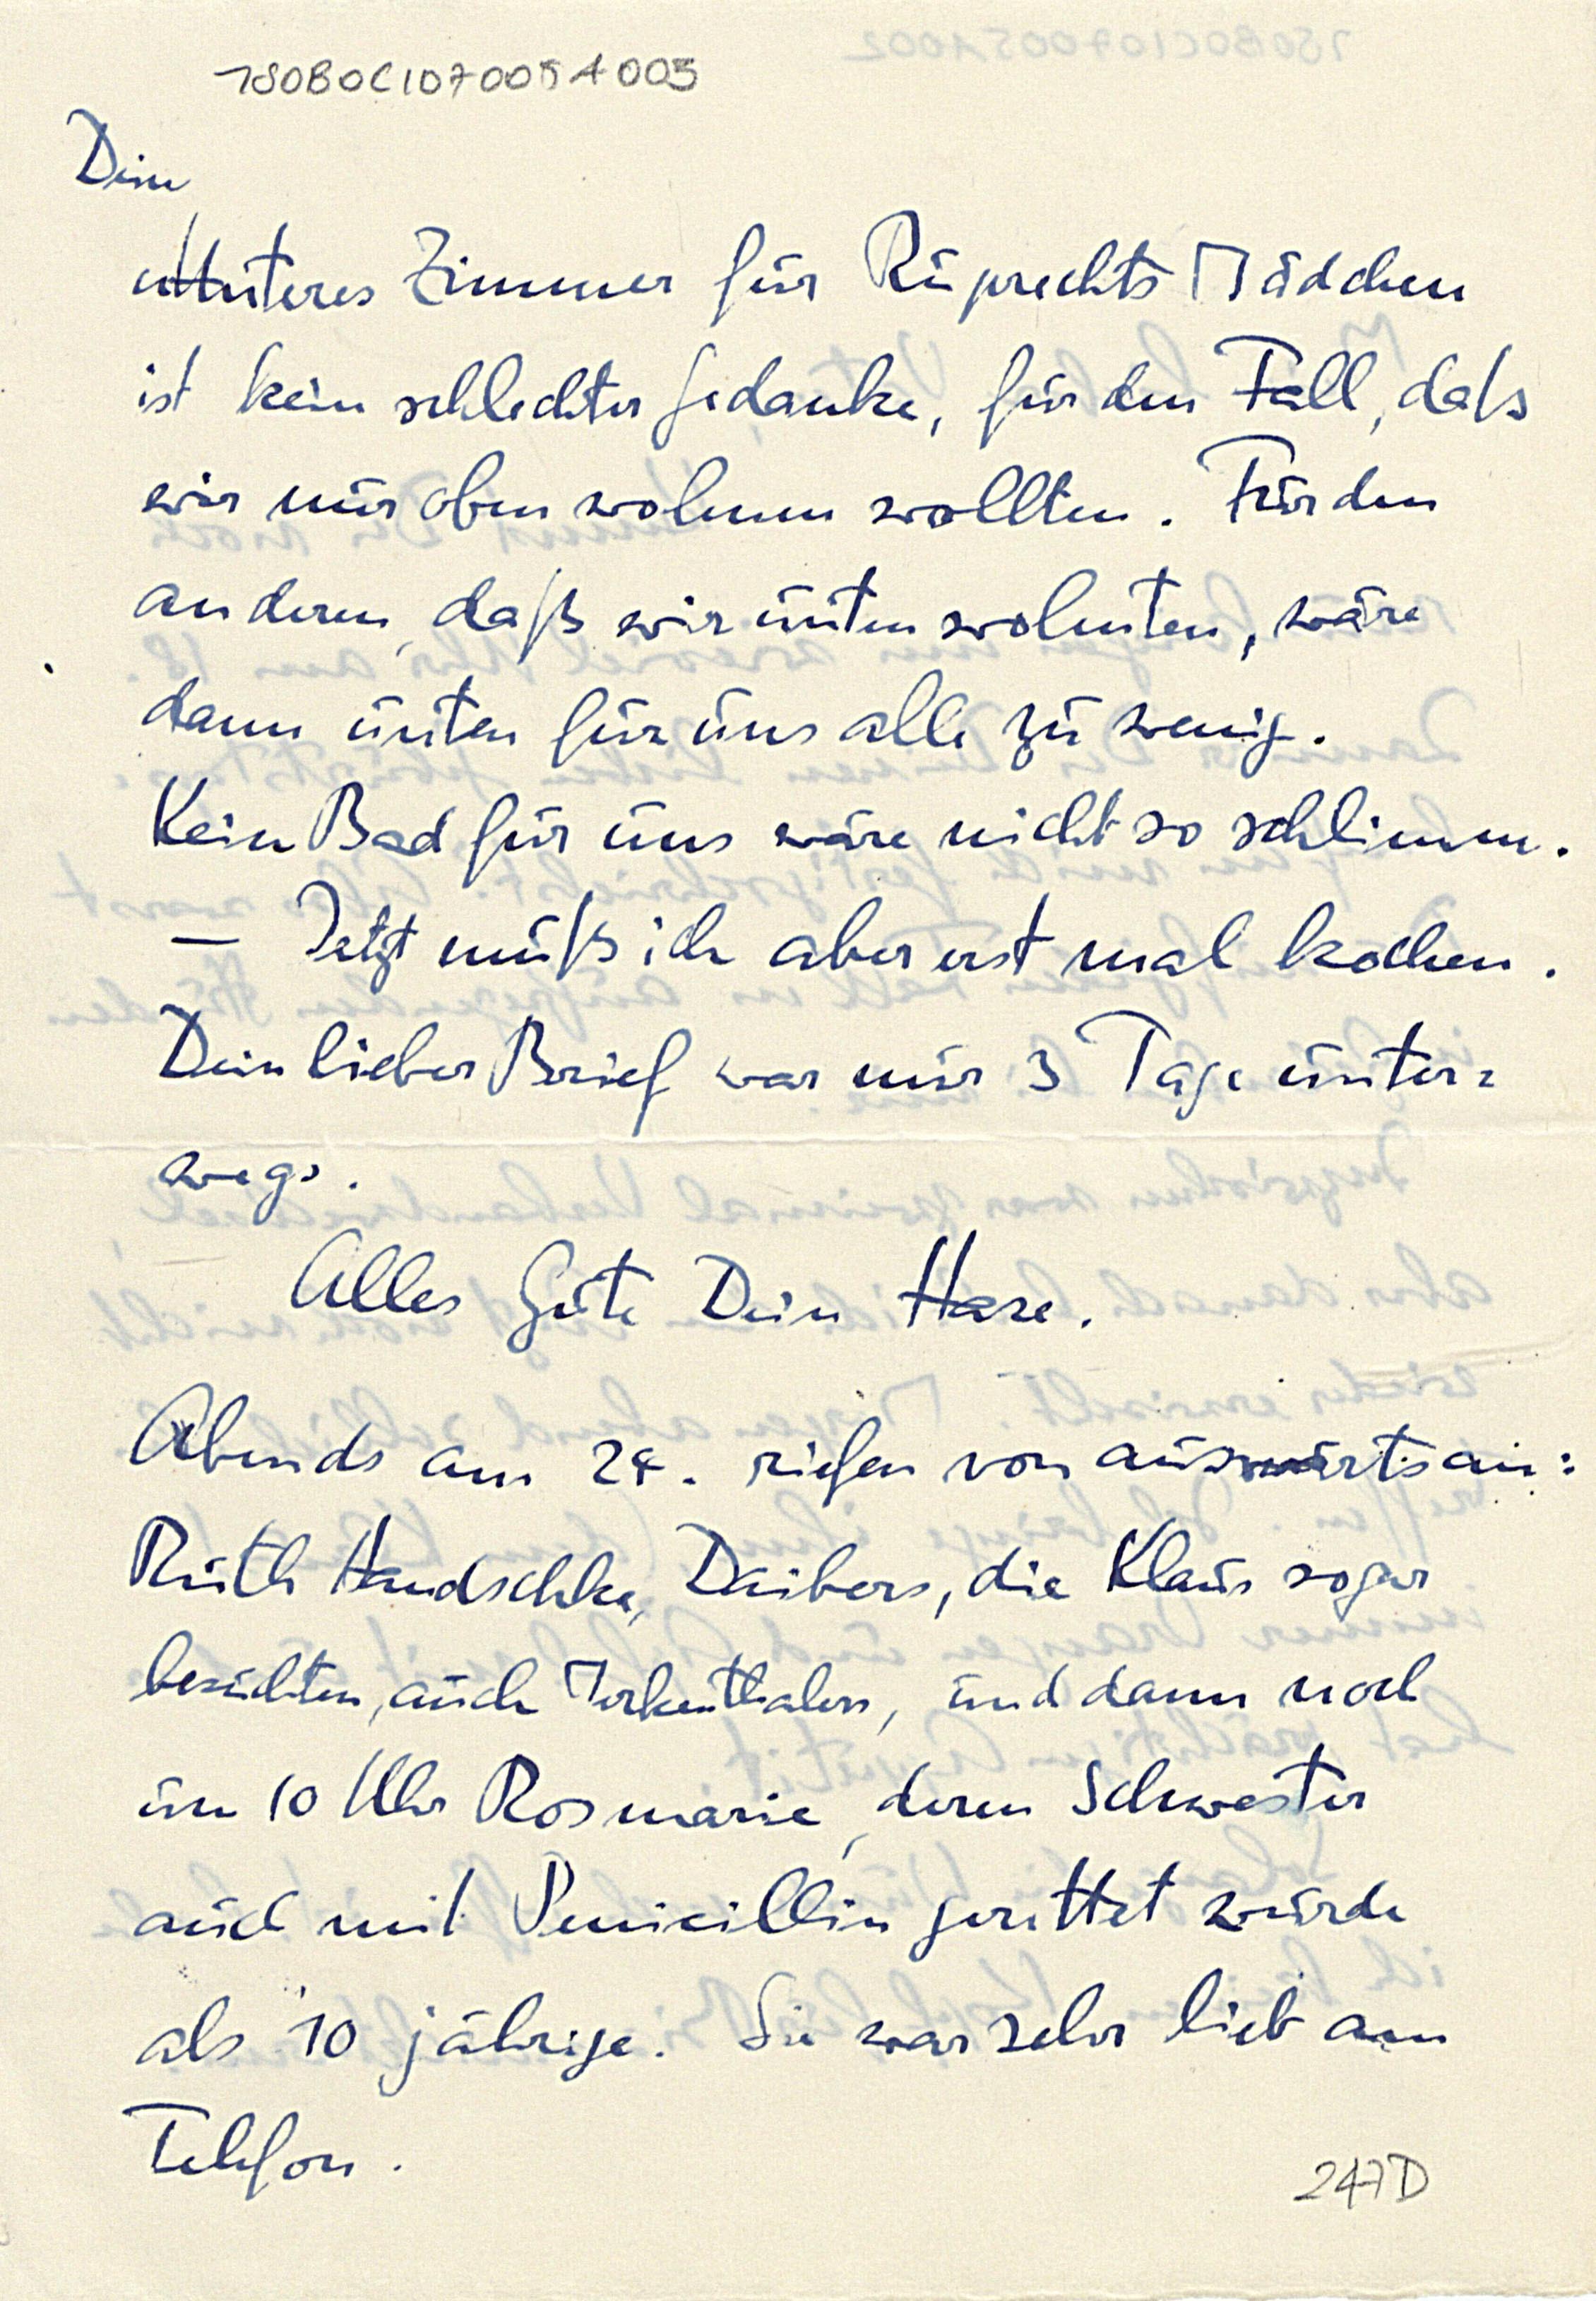 1S0B0C1070051005
Dein
unteres Zimmer für Ruprechts Mädchen
ist kein schlechter Gedanke, für den Fall, daß
wir nur oben wohnen wollten. Für den
anderen, daß wir unten wohnten, wäre
dann unten für uns alle zu wenig.
Kein Bad für uns wäre nicht so schlimm.
— Jetzt muß ich aber erst mal kochen.
Dein lieber Brief war nur 3 Tage unter=
wegs.
Alles Gute Dein Hase.
Abends am 24. riefen von auswärts an:
Ruth Handschke, Daibers, die Klaus sogar
besuchten, auch, und dann noch
um 10 Uhr Rosmarie, deren Schwester
auch mit Penicillin gerettet wurde
als 10 jährige. Sie war sehr lieb am
Telefon.
247D